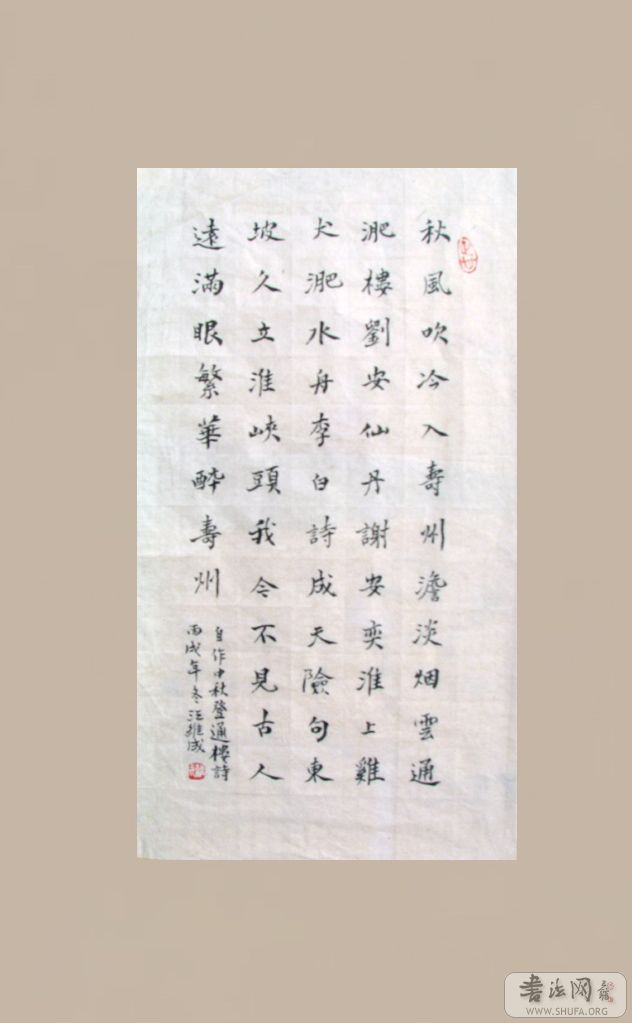 秋風吹冷入壽州澹淡烟雲通
淝樓劉安仙丹謝安奕淮上雞
犬淝水舟李白詩成天險句東
坡久立淮峽頭我今不見古人
遠滿眼繁華醉壽州
自作中秋登通樓詩
丙戌年冬汪維成
書法网
WWW.SHUFA.ORG